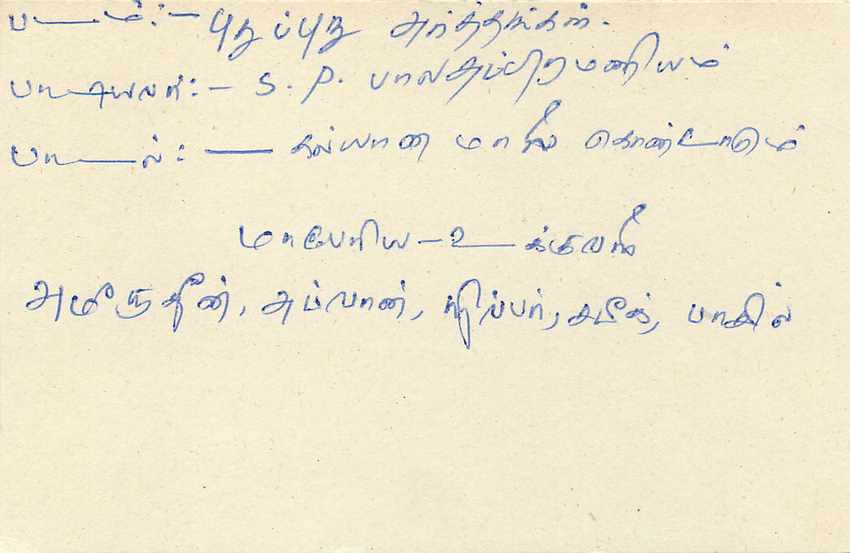 படம்:- புதுப்புது அர்த்தங்கள்.
பாடியவர்:- S. P. பாலசுப்பிரமணியம்
பாடல்: — கல்யாண மாலை கொண்டாடும்
மாபேரிய - உக்குவளை
அமீருதீன், அப்வான், சில்பர், சபீக், பாசில்